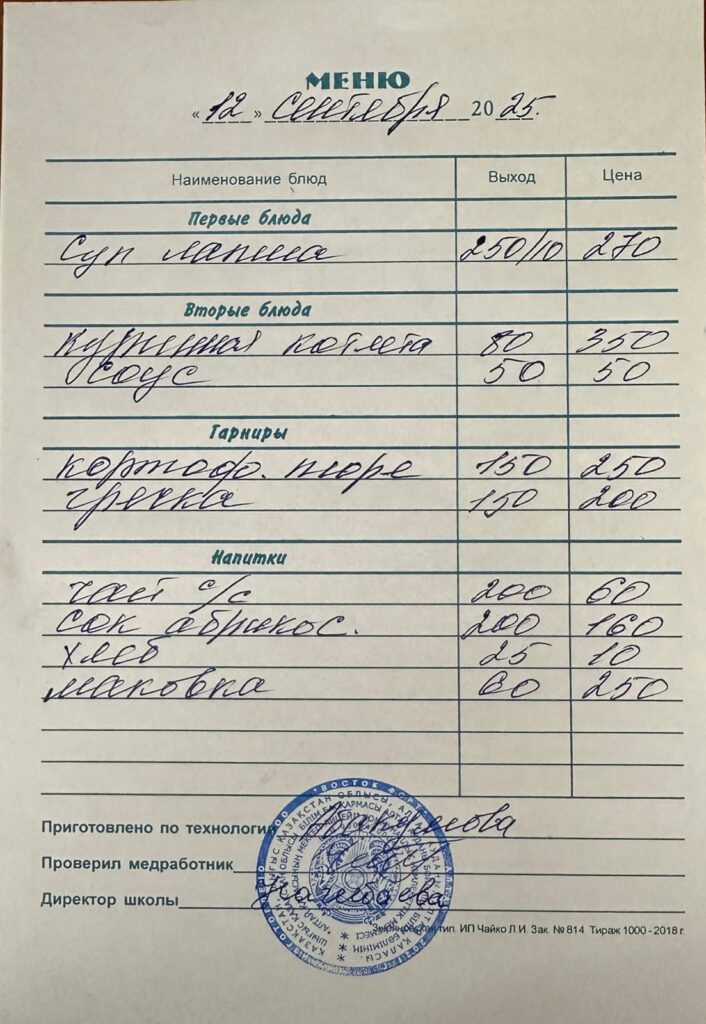 МЕНЮ
«12» Сентября 2025.
Наименование блюд Выход Цена
Первые блюда
Суп лапша 250/10 270
Вторые блюда
куринная котлета 80 350
Соус 50 50
Гарниры
картоф. пюре 150 250
гречка 150 200
Напитки
чай с/с 200 60
сок абрикос. 200 160
хлеб 25 10
маковка 60 250
Приготовлено по технологии
Проверил медработник
Директор школы
Зыряновская тип. ИП Чайко Л.И. Зак. № 814 Тираж 1000 - 2018 г.